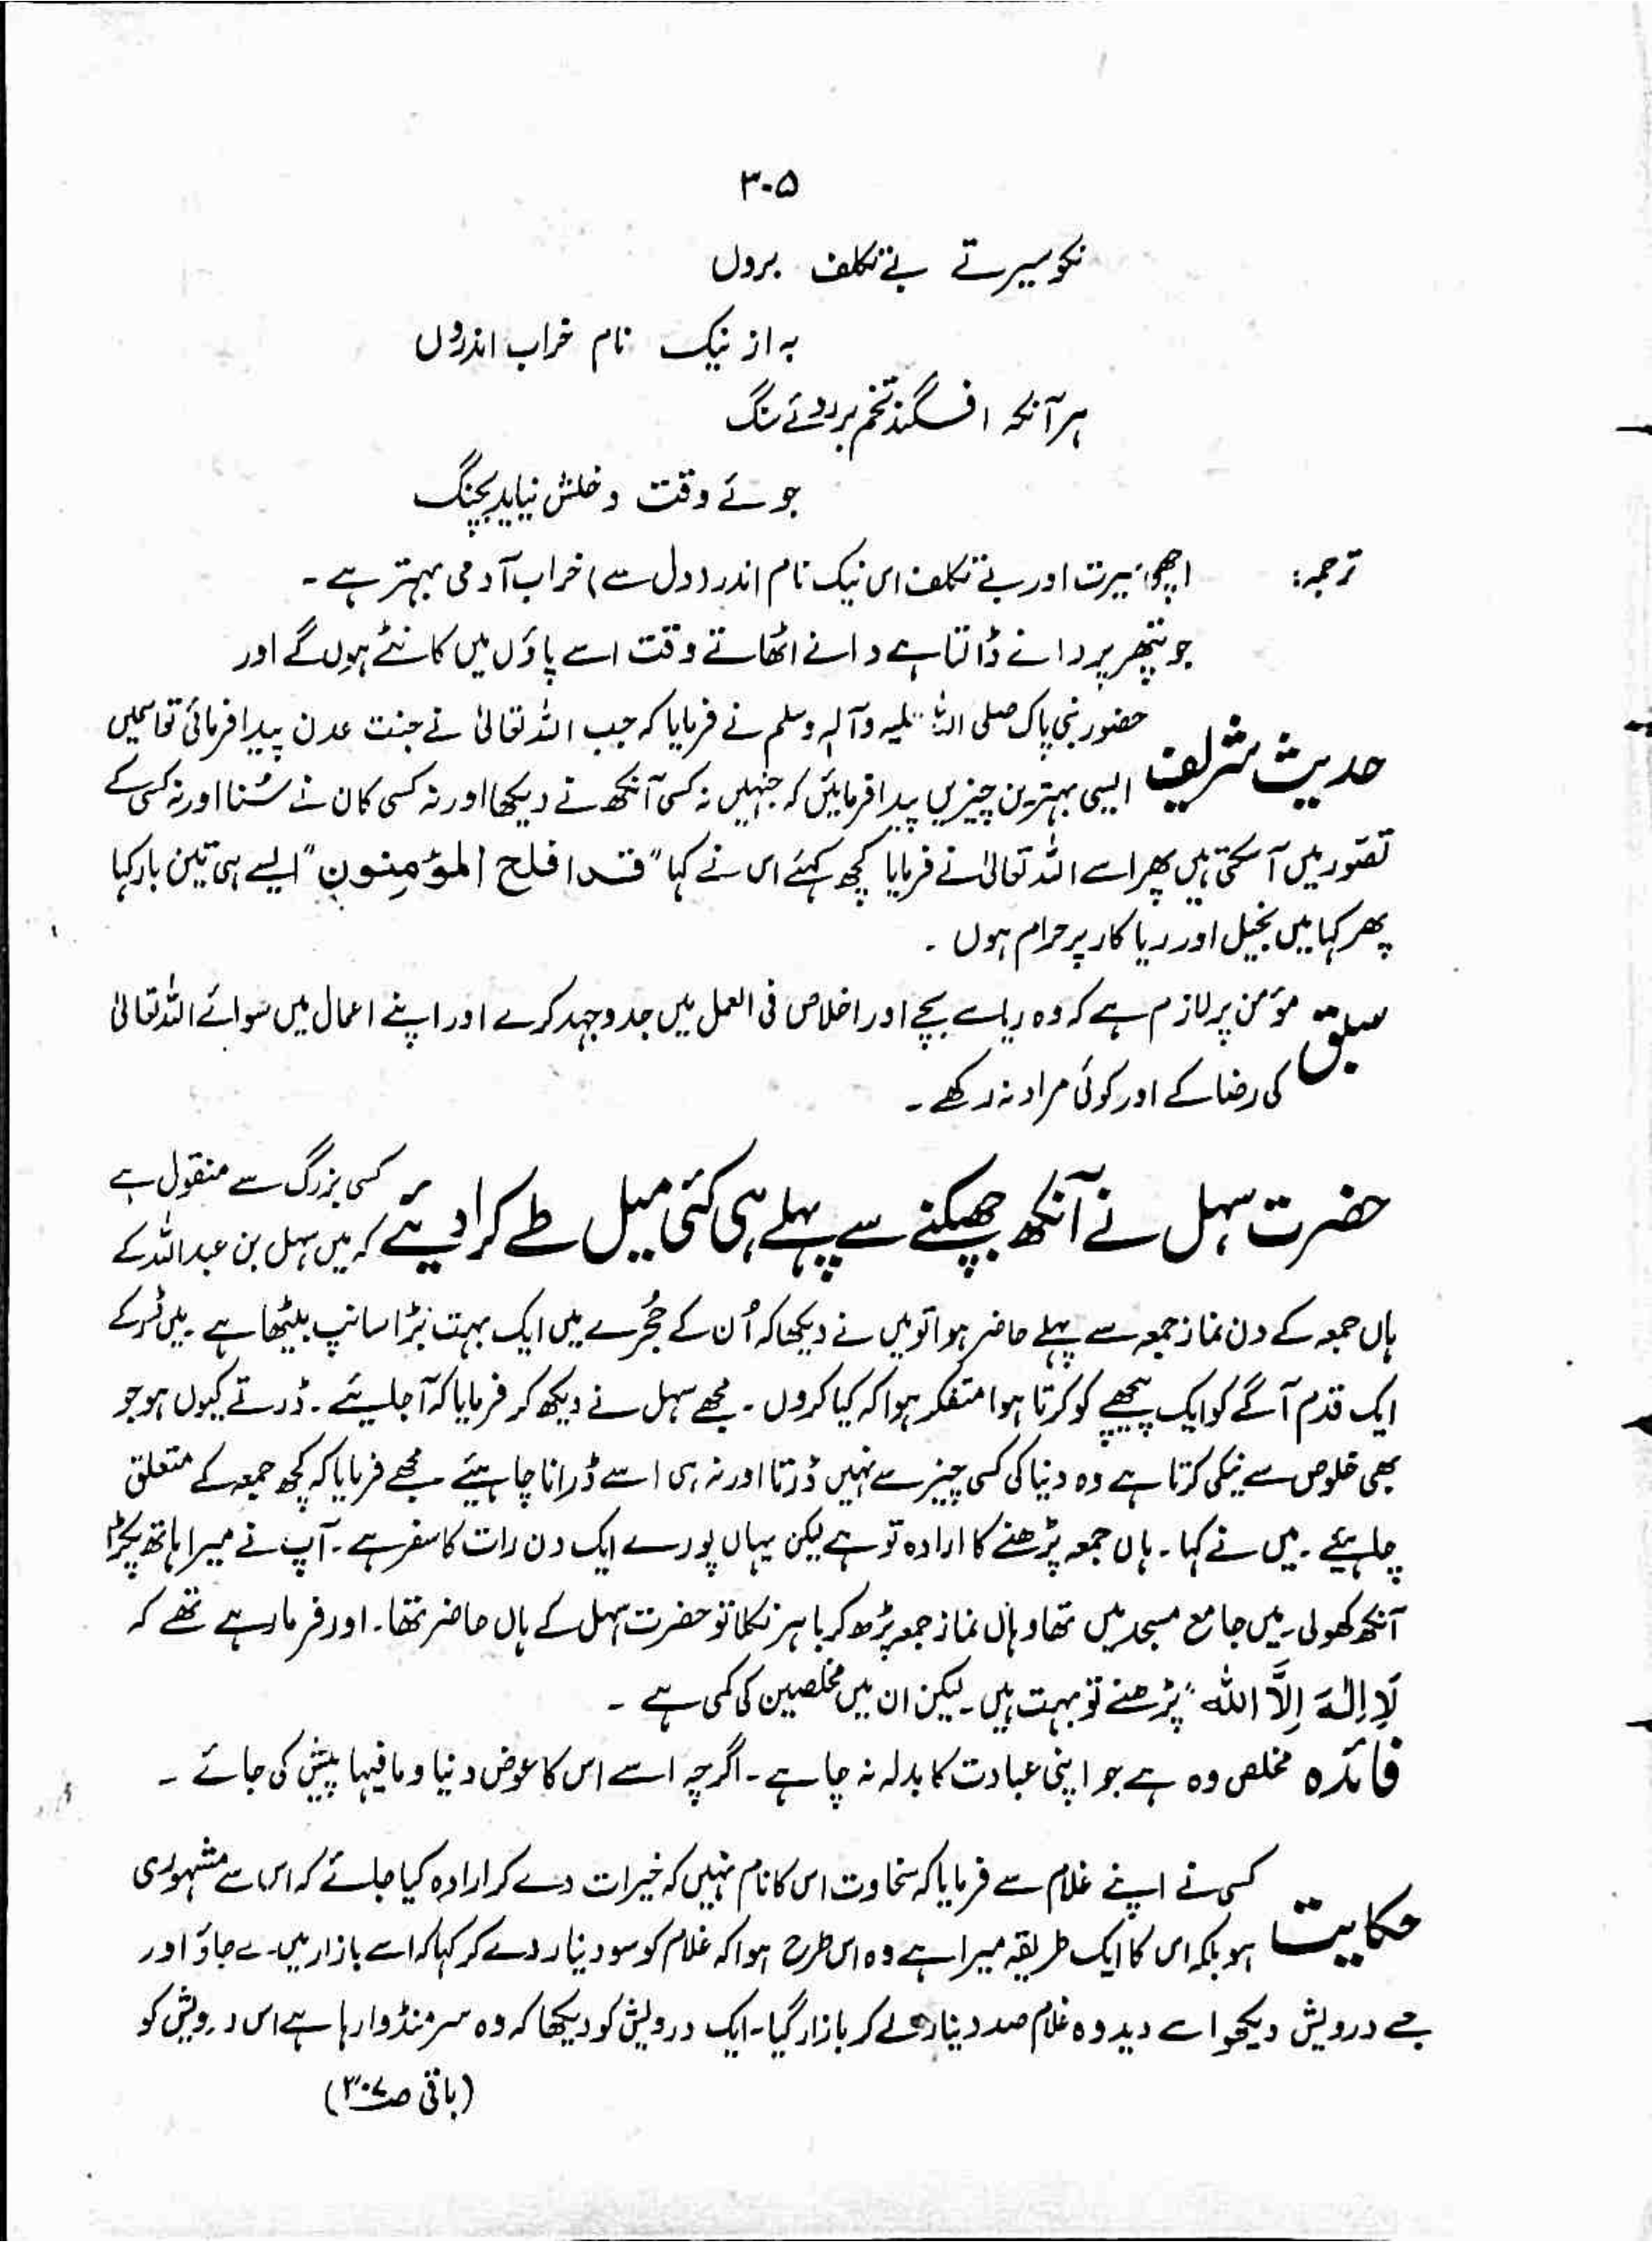 ۳۰۵
نکو سیرتے بے تکلف بروں
بہ از نیک نام خراب اندروں
ہر آنکہ افگند تخم بر روئے سنگ
جوئے وقت دخلش نیاید بچنگ
ترجمہ: اچھی سیرت اور بے تکلف اس نیک نام اندر (دل سے) خراب آدمی بہتر ہے ۔
جو پتھر پر دانے ڈالتا ہے دانے اٹھاتے وقت اسے پاؤں میں کانٹے ہوں گے اور
حدیث شریف حضور نبی پاک صلی اللہ علیہ وآلہ وسلم نے فرمایا کہ جب اللہ تعالیٰ نے جنت عدن پیدا فرمائی تو اسمیں
ایسی بہترین چیزیں پیدا فرمائیں کہ جنہیں نہ کسی آنکھ نے دیکھا اور نہ کسی کان نے سُنا اور نہ کسی کے
تصّور میں آ سکتی ہیں پھر اسے اللہ تعالیٰ نے فرمایا کچھ کہئے اس نے کہا "قد افلح المؤمنون" ایسے ہی تین بار کہا
پھر کہا میں بخیل اور ریا کار پر حرام ہوں ۔
سبق مؤمن پر لازم ہے کہ وہ ریا سے بچے اور اخلاص فی العمل میں جدوجہد کرے اور اپنے اعمال میں سوائے اللہ تعالیٰ
کی رضا کے اور کوئی مراد نہ رکھے ۔
حضرت سہل نے آنکھ جھپکنے سے پہلے ہی کئی میل طے کرا دیئے کسی بزرگ سے منقول ہے
کہ میں سہل بن عبداللہ کے
ہاں جمعہ کے دن نماز جمعہ سے پہلے حاضر ہوا تو میں نے دیکھا کہ اُن کے حُجرے میں ایک بہت بڑا سانپ بیٹھا ہے ۔ میں ڈر کے
ایک قدم آگے کو ایک پیچھے کو کرتا ہوا متفکر ہوا کہ کیا کروں ۔ مجھے سہل نے دیکھ کر فرمایا کہ آ جائیے ۔ ڈرتے کیوں ہو جو
بھی خلوص سے نیکی کرتا ہے وہ دنیا کی کسی چیز سے نہیں ڈرتا اور نہ ہی اسے ڈرانا چاہیئے مجھے فرمایا کہ کچھ جمعہ کے متعلق
چاہیئے ۔ میں نے کہا ۔ ہاں جمعہ پڑھنے کا ارادہ تو ہے لیکن یہاں پورے ایک دن رات کا سفر ہے ۔ آپ نے میرا ہاتھ پکڑا
آنکھ کھولی ۔ میں جامع مسجد میں تھا وہاں نماز جمعہ پڑھ کر باہر نکلا تو حضرت سہل کے ہاں حاضر تھا ۔ اور فرما رہے تھے کہ
لَا اِلٰہَ اِلَّا اللہ" پڑھنے تو بہت ہیں ۔ لیکن ان میں مخلصین کی کمی ہے ۔
فائدہ مخلص وہ ہے جو اپنی عبادت کا بدلہ نہ چاہے ۔ اگرچہ اسے اس کا عوض دنیا و مافیہا پیش کی جائے ۔
حکایت کسی نے اپنے غلام سے فرمایا کہ سخاوت اس کا نام نہیں کہ خیرات دے کر ارادہ کیا جائے کہ اس سے مشہوری
ہو بلکہ اس کا ایک طریقہ میرا ہے وہ اس طرح ہوا کہ غلام کو سو دینار دے کر کہا کہ اسے بازار میں لے جاؤ اور
جسے درویش دیکھو اسے دیدو وہ غلام صد دینار لے کر بازار گیا ۔ ایک درویش کو دیکھا کہ وہ سر منڈوا رہا ہے اس درویش کو
(باقی ص۳۰۷)